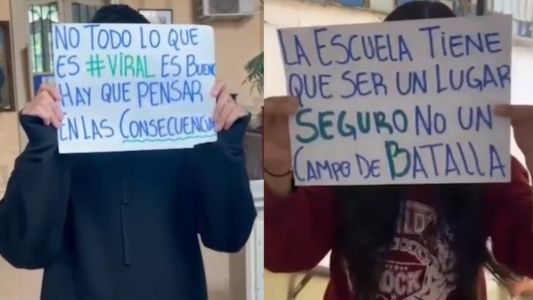 NO TODO LO QUE
ES #VIRAL ES BUENO
HAY QUE PENSAR
EN LAS CONSECUENCIA
LA ESCUELA TIENE
QUE SER UN LUGAR
SEGURO NO UN
CAMPO DE BATALLA
ROCK